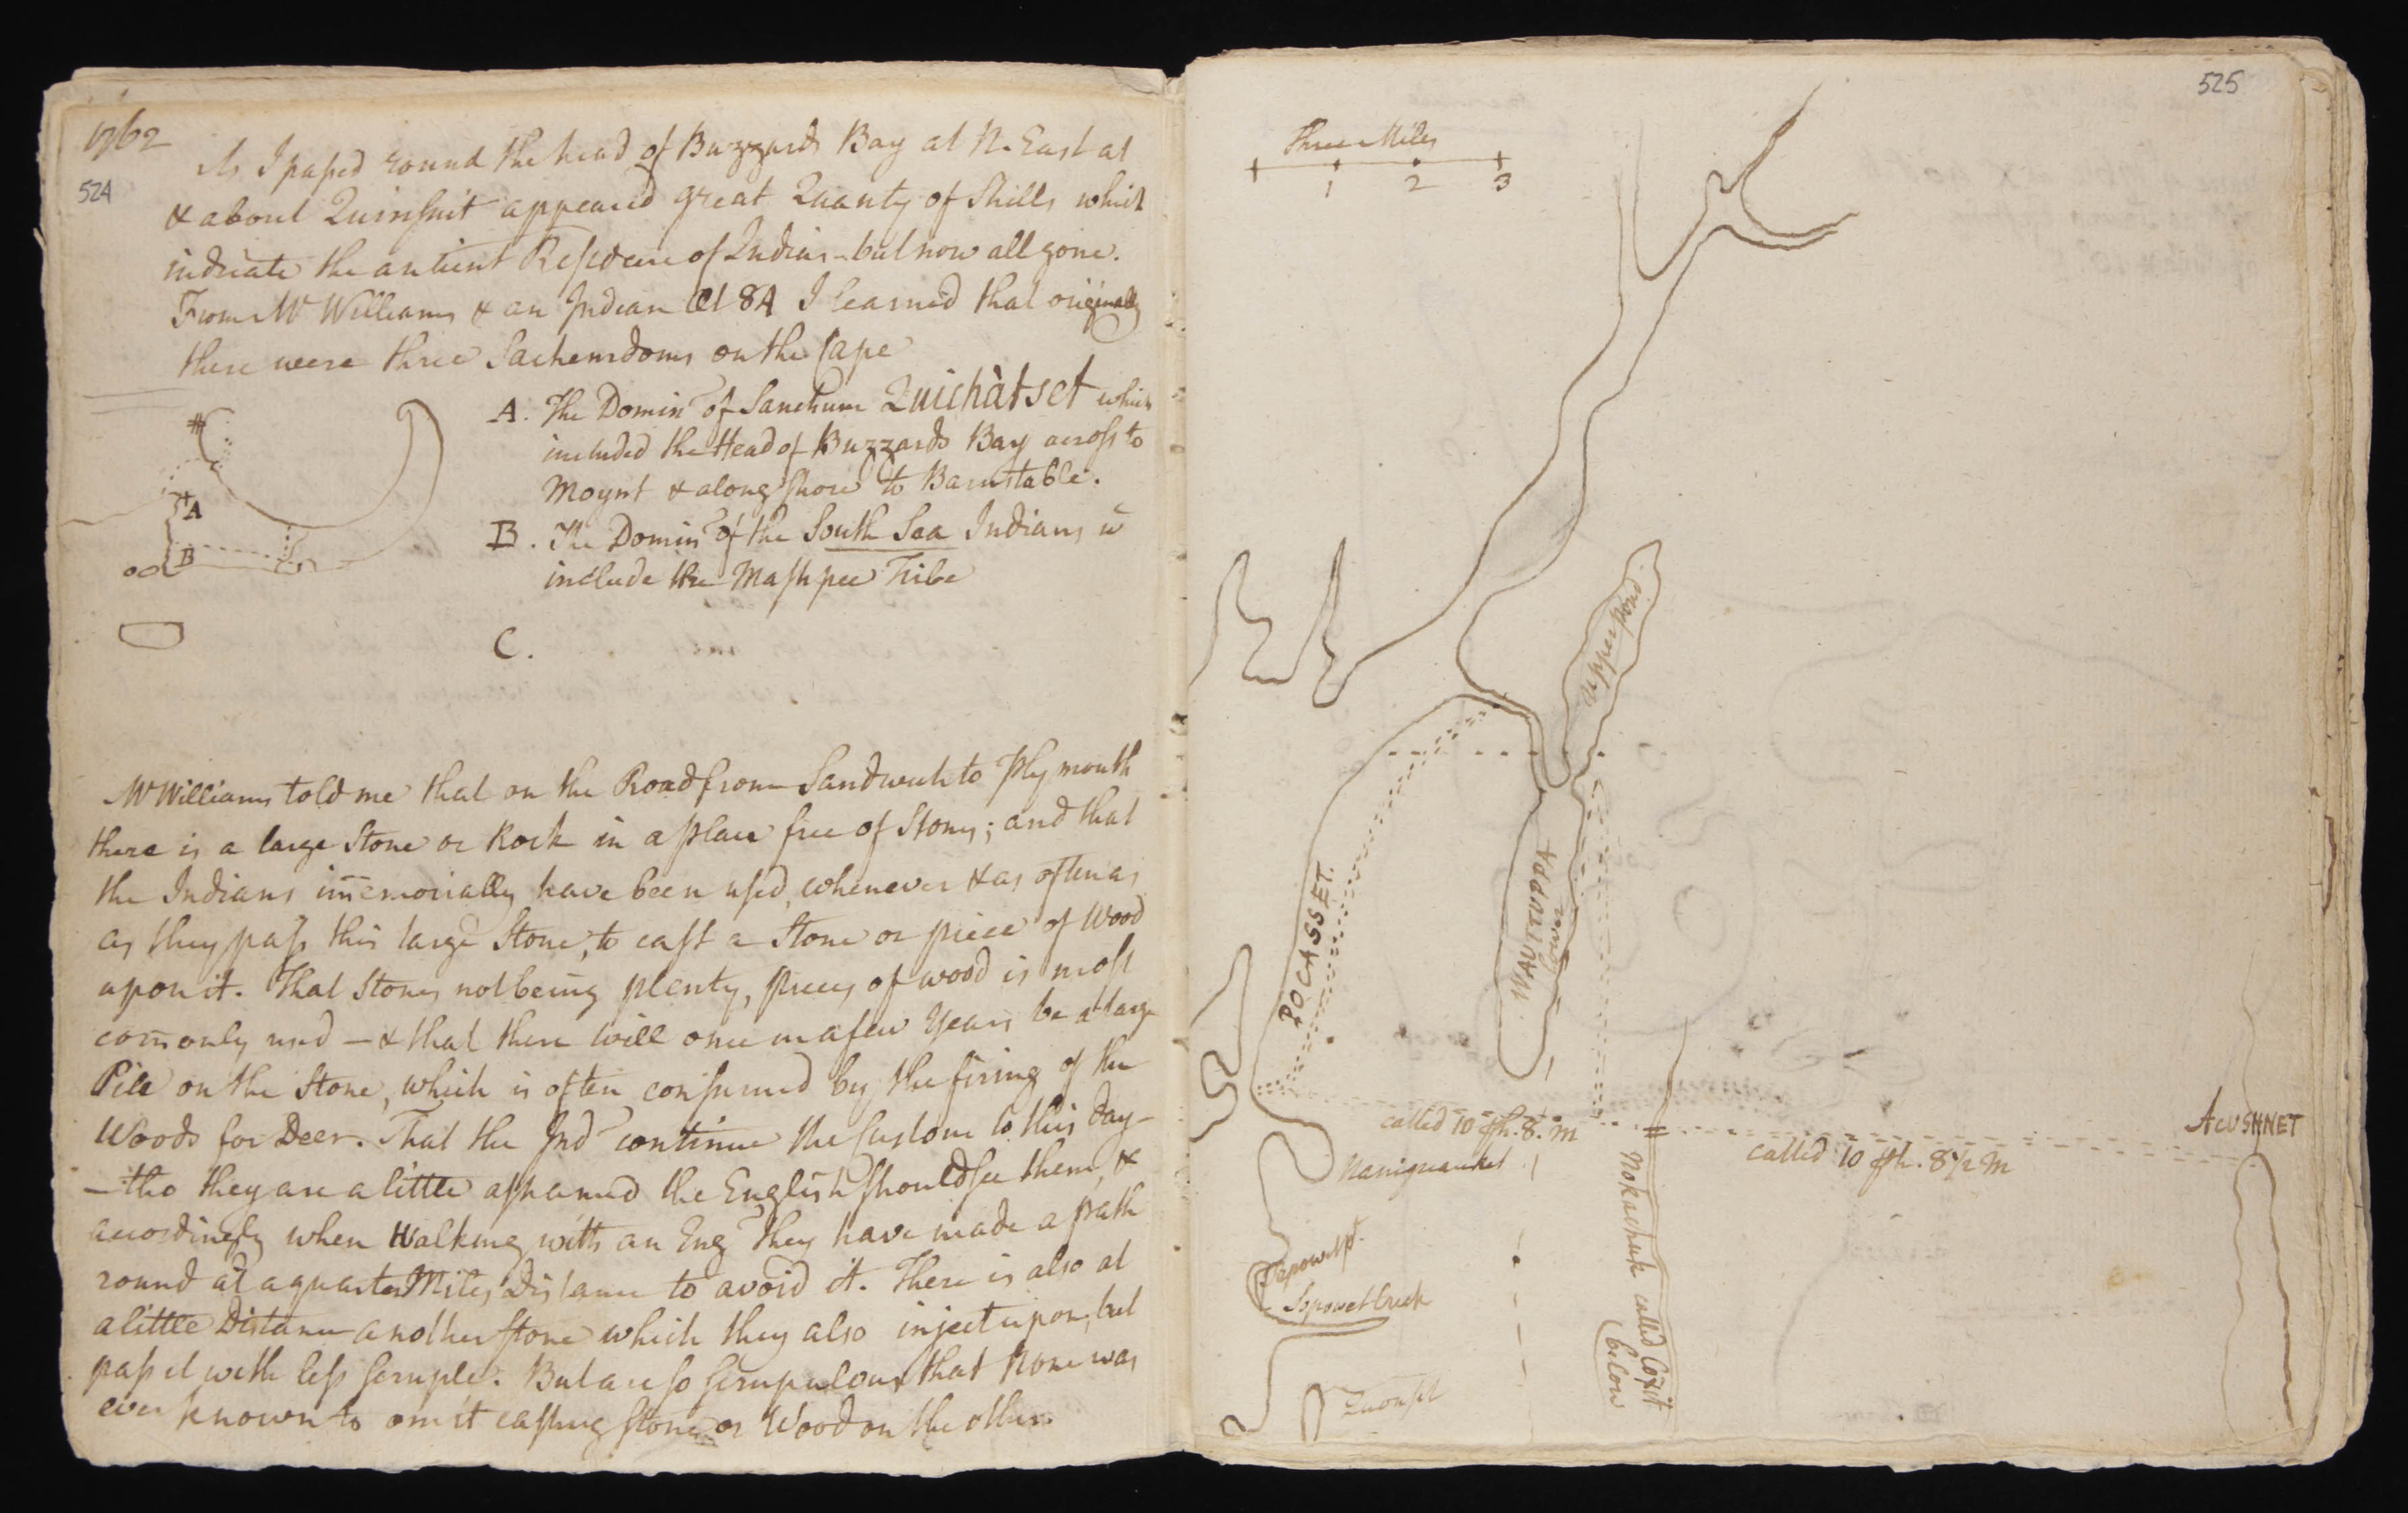 1762
524
As I paſsed round the head of Buzzards Bay at N. East at
& about Quinsuit appeared great Quanty of Shells which
indicate the antient Residence of Indians – but now all gone.
From Mr Williams & an Indian Æt 84 I learned that originally
there were three Sachemdoms on the Cape
A. The Domin of Sanchum Quichàtset which
included the Head of Buzzards Bay acroſs to
Moynt & along shore to Barnstable.
B. The Domin of the South Sea Indians w
include the Mashpee Tribe
C.
A
B
Mr Williams told me that on the Road from Sandwich to Plymouth
there is a large Stone or Rock in a place free of Stones; and that
the Indians im̅emorially have been used, whenever & as often as
as they paſs this large Stone, to cast a Stone or piece of Wood
upon it. That Stones not being plenty, pieces of wood is most
com̅only used — & that there will once in a few Years be a large
Pile on the Stone, which is often consumed by the firing of the
Woods for Deer. That the Ind continue the Custom to this day –
– tho they are a little ashamed the English should see them, &
accordingly when walking with an Eng they have made a path
round at a quarter Miles Distance to avoid it. There is also at
a little Distance another stone which they also inject upon, but
paſs it with leſs scruple. But are so scrupulous that None was
ever known to omit casting Stones or Wood on the other.
525
Three Miles
1 2 3
upper pond
POCASSET.
WATEUPPA
called 10 ph. 8. m
Naniquauket
Acushnet
called 10 ph. 8 1/2 m
Sapowet pt.
Sopowet Creek
Nokachuk called Coxit
below
Quonset